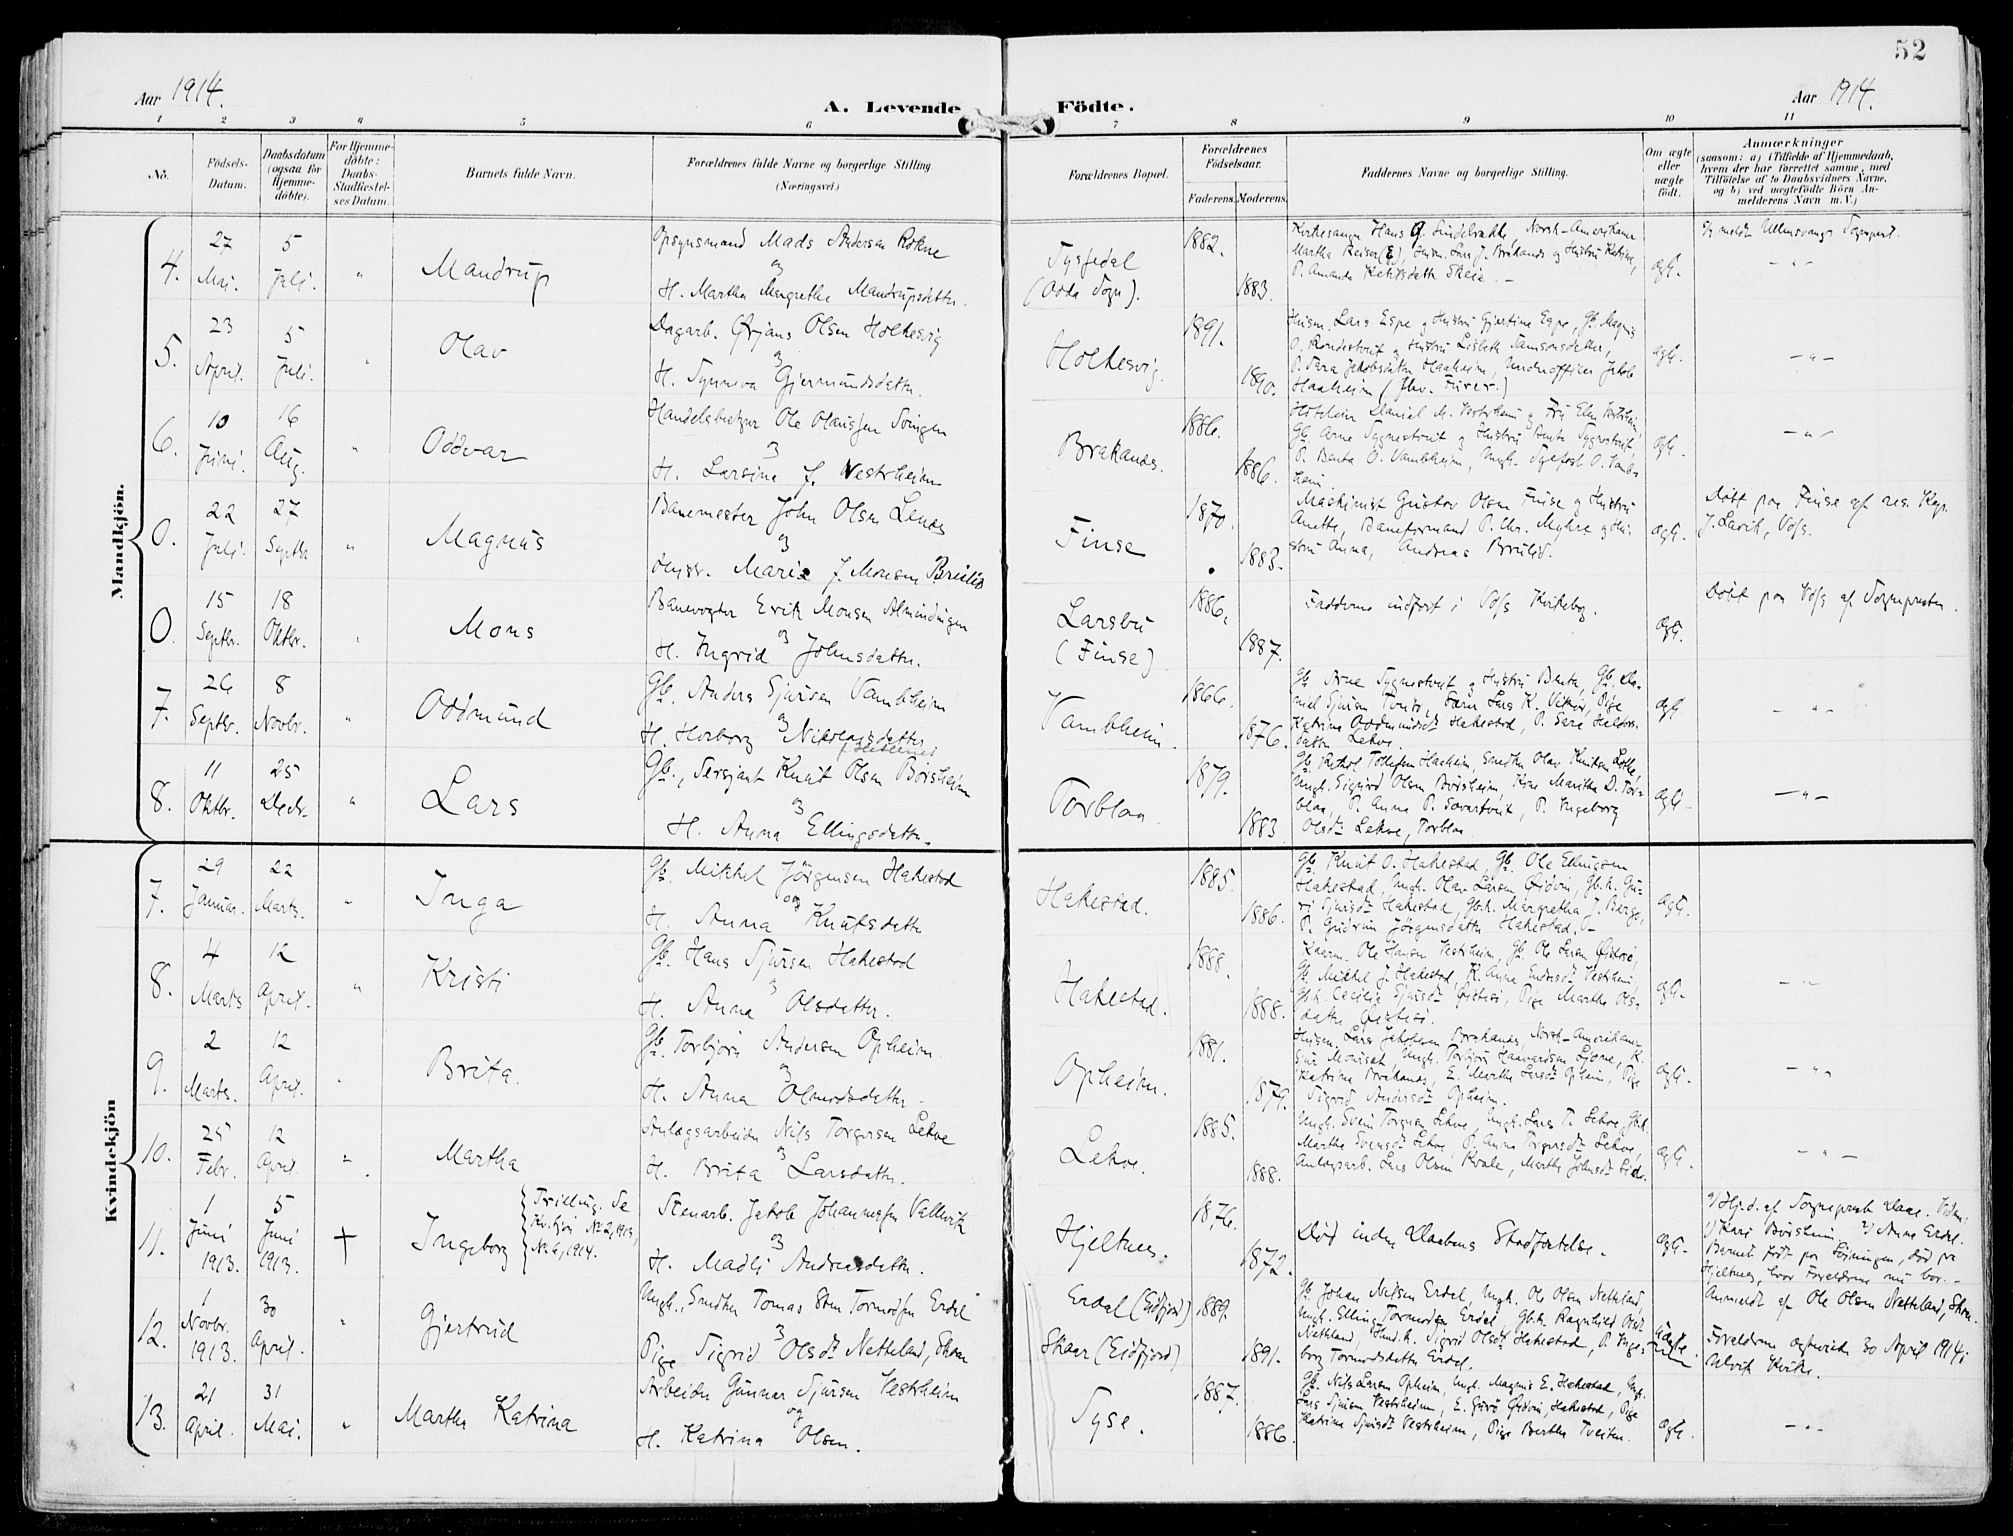 52
Aar 1914.
A. Levende Födte.
Aar 1914.
1 2 3 4 5 6 7 8 9 10 11
No.
Födsels-
Datum.
Daabsdatum
(ogsaa for
Hjemme-
döbte).
For Hjemme-
döbte:
Daabs-
Stadfæstel-
ses Datum.
Barnets fulde Navn.
Forældrenes fulde Navne og borgerlige Stilling
(Næringsvei.)
Forældrenes Bopæl.
Forældrenes
Födselsaar.
Faderens. Moderens.
Faddernes Navne og borgerlige Stilling.
Om ægte
eller
uægte
födt.
Anmærkninger
(saasom: a) i Tilfælde af Hjemmedaab,
hvem der har forrettet samme, med
Tilföielse af to Daabsvidners Navne,
og b) ved uægtefödte Börn An-
melderens Navn m. V.)
Mandkjön.
4.
27
Mai.
5
Juli.
"
Mandrup
Opsynsmand Mads Andersen Rokne
og
H. Martha Margrethe Mandrupsdatter.
Tyssedal
(Odda Sogn).
1882.
1883.
Martha Reiser(E), Husm. Lars J. Brakanes og Hustru Katrina,
P. Amanda Ketilsdatter Skeie. -
ægt.
- " -
5.
23
April.
5
Juli.
"
Olav
Dagarb. Ørjans Olsen Holkesvig
og
H. Synneva Gjermundsdatter
Holkesvig.
1891.
1890.
Husm. Lars Espe og Hustru Gjertina Espe, Gb. Magnus
O. Rondestveit og Hustru Lisbeth Samsonsdatter,
P. Sara Jakobsdatter Haaheim, Underofficer Jakob
Haaheim
ægt.
- " -
6.
10
Juni.
16
Aug.
"
Oddvar
Handelsbetjent Ole Olaussen Soingen
og
H. Larsina f. Vestrheim
Brakanes.
1886.
1886.
Daniel M. Vestrheim og Fru Elen Vestrheim,
Gb. Arne Sygnestveit og Hustru Brita Sygnestveit,
P. Benta O. Vambheim, Ungk. Sylfest O. Vamb-
heim
ægt.
- " -
0.
22
Juli.
27
Septbr
"
Magnus
Banemester John Olsen Lenæs
og
Hustr. Marie f. Monsen Breilid
Finse
1870.
1883.
Maskinist Gustav Olsen Finse og Hustru
Anette, Baneformand P. Chr. Myhre og Hu-
stru Anna, Andreas Breilid.
ægt.
Döbt paa Finse af res. Kap.
J. Lavik, Voss.
0.
15
Septbr.
18
Oktbr.
"
Mons
Banevogter Erik Monsen Almindingen
og
H. Ingrid Johnsdatter.
Larsbu
(Finse)
1886.
1887.
Fadderne indfört i Voss Kirkebog.
ægt.
Döbt paa Voss af Sognepresten.
7.
26
Septbr.
8
Novbr.
"
Oddmund
Gb. Anders Sjursen Vambheim
og
H. Herborg Nikolaisdatter
Vambheim.
1866.
1876.
Gb. Arne Sygnestveit og Hustru Brita, Gb. Da-
niel Sjursen Tveito, Lars K. Vikør, Pige
Katrine Oddmundsdt Hakestad, P. Sara Haldors-
datter Lekve.
ægt
- " -
8.
11
Oktbr.
25
Decbr.
"
Lars
Gb., Sersjant Knut Olsen Börsheim
og
H. Anna Ellingsdatter.
Torblaa
1879.
1883
Gb. Ketil Tollefsen Haaheim, Smeden Olav Knutsen Lekve,
Ungk. Sigurd Olsen Börsheim, Kone Maritha D. Tor-
blaa, P. Anna P. Savartveit, P. Ingeborg
Olsdt Lekve, Torblaa.
ægt.
- " -
Kvindekjön
7.
29
Januar.
22
Marts.
"
Inga
Gb. Mikkel Jörgensen Hakestad
og
H. Anna Knutsdatter
Hakestad.
1885.
1886.
Gb. Knut O. Hakestad, Gb. Ole Ellingsen
Hakestad, Ungk. Olav Larsen Øidvin, Gb.k. Gu-
ri Sjursdt Hakestad, Gb.k. Margretha J. Berge,
P. Gudrun Jörgensdatter Hakestad. -
ægt.
8.
4
Marts
12
April.
"
Kristi
Gb. Hans Sjursen Hakestad
og
H. Anna Olsdatter.
Hakestad.
1888.
1888.
Ole Hansen Vestrheim, Gb. Ole Larsen Øistesö,
Gb. Mikkel J. Hakestad, K. Anna Endresdt Vestrheim,
Gb.k. Cecilie Sjursdt Øistesö, Pige Martha Ols-
datter Øistesö.
ægt.
- " -
9.
2
Marts.
12
April.
"
Brita.
Gb. Torbjörn Andersen Opheim.
og
H. Anna Olmodsdatter.
Opheim.
1881.
1879.
Husm. Lars Jakobsen Brakanes, Norsk-Amerikaner
Sjur Moniset, Ungk. Torbjörn Haavardsen Ljone, K.
Katrina Brakanes, E. Martha Larsdt Opheim, Pige
Sigrid Andersdt Opheim.
ægt.
- " -
10.
25
Febr.
12
April.
"
Martha
Anlægsarbeider Nils Torgersen Lekve
og
H. Brita Larsdatter.
Lekve.
1885.
1888.
Ungk. Svein Torgersen Lekve, Ungk. Lars T. Lekve, Gb.k.
Martha Svensdt Lekve, P. Anna Torgersdt Lekve,
Anlægsarb. Lars Olsen Kvale, Martha Johnsdt
ægt.
- " -
11.
1
Juni
1913.
5
Juni
1913.
+
Ingeborg
Trilling. Se
Kv.kjön No 2, 1913,
No 6, 1914.
Stenarb. Jakob Johannessen Vallevik
og
H. Madli Andreasdatter.
Hjeltnes.
1876.
1872.
Död inden Daabens Stadfæstelse.
ægt.
Hjd. af Sogneprest Daae. Vidner:
1/ Kari Börsheim 2/ Anna Erdal.
Barnet födt paa Soiningen, död paa
Hjeltnes, hvor Forældrene nu bor. -
12.
1
Novbr.
1913.
30
April.
"
Gjertrud
Ungk., Smeden Tomas Sten Tormodsen Erdal
og
Pige Sigrid Olsdt Netteland, Skaar
Erdal (Eidfjord)
Skaar (Eidfjord)
1889.
1891.
Gb. Johan Nilsen Erdal, Ungk. Ole Olsen Netteland,
Ungk. Elling Tormodsen Erdal, Gb.k. Ragnhild Olsdt
Netteland, Husm.k. Sigrid Olsdt Hakestad, P. Inge-
borg Tormodsdatter Erdal.
Uægte.
Anmeldt af Ole Olsen Netteland, Skaar.
Forældrene ægteviede 30 April 1914 i
Ulvik Kirke.
13.
21
April.
31
Mai.
"
Martha Katrina
Arbeider Gunnar Sjursen Vestrheim
og
H. Katrina Olsen.
Tyse.
1887.
1886.
Gb. Nils Larsen Opheim, Ungk. Magnus E. Hakestad, Ungk.
Lars Sjursen Vestrheim, E. Guro Øidvin, Hakestad, Pige
Katrina Sjursdt Vestrheim, Pige Bertha Tveiten.
ægt.
- " -